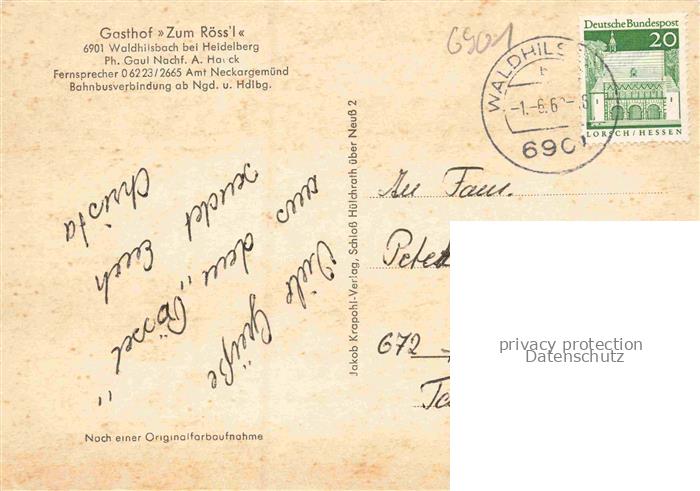 Gasthof »Zum Röss'l«
6901 Waldhilsbach bei Heidelberg
Ph. Gaul Nachf. A. Hauck
Fernsprecher 06223/2665 Amt Neckargemünd
Bahnbusverbindung ab Ngd. u. Hdlbg.
6901
WALDHILSB
-1.-6.6
6901
Deutsche Bundespost
20
LORSCH/HESSEN
Viele Grüße
aus dem „Rössel"
sendet Euch
Christa
Jakob Krapohl-Verlag, Schloß Hülchrath über Neuß 2
An Fam.
Pete
672
Nach einer Originalfarbaufnahme
privacy protection
Datenschutz